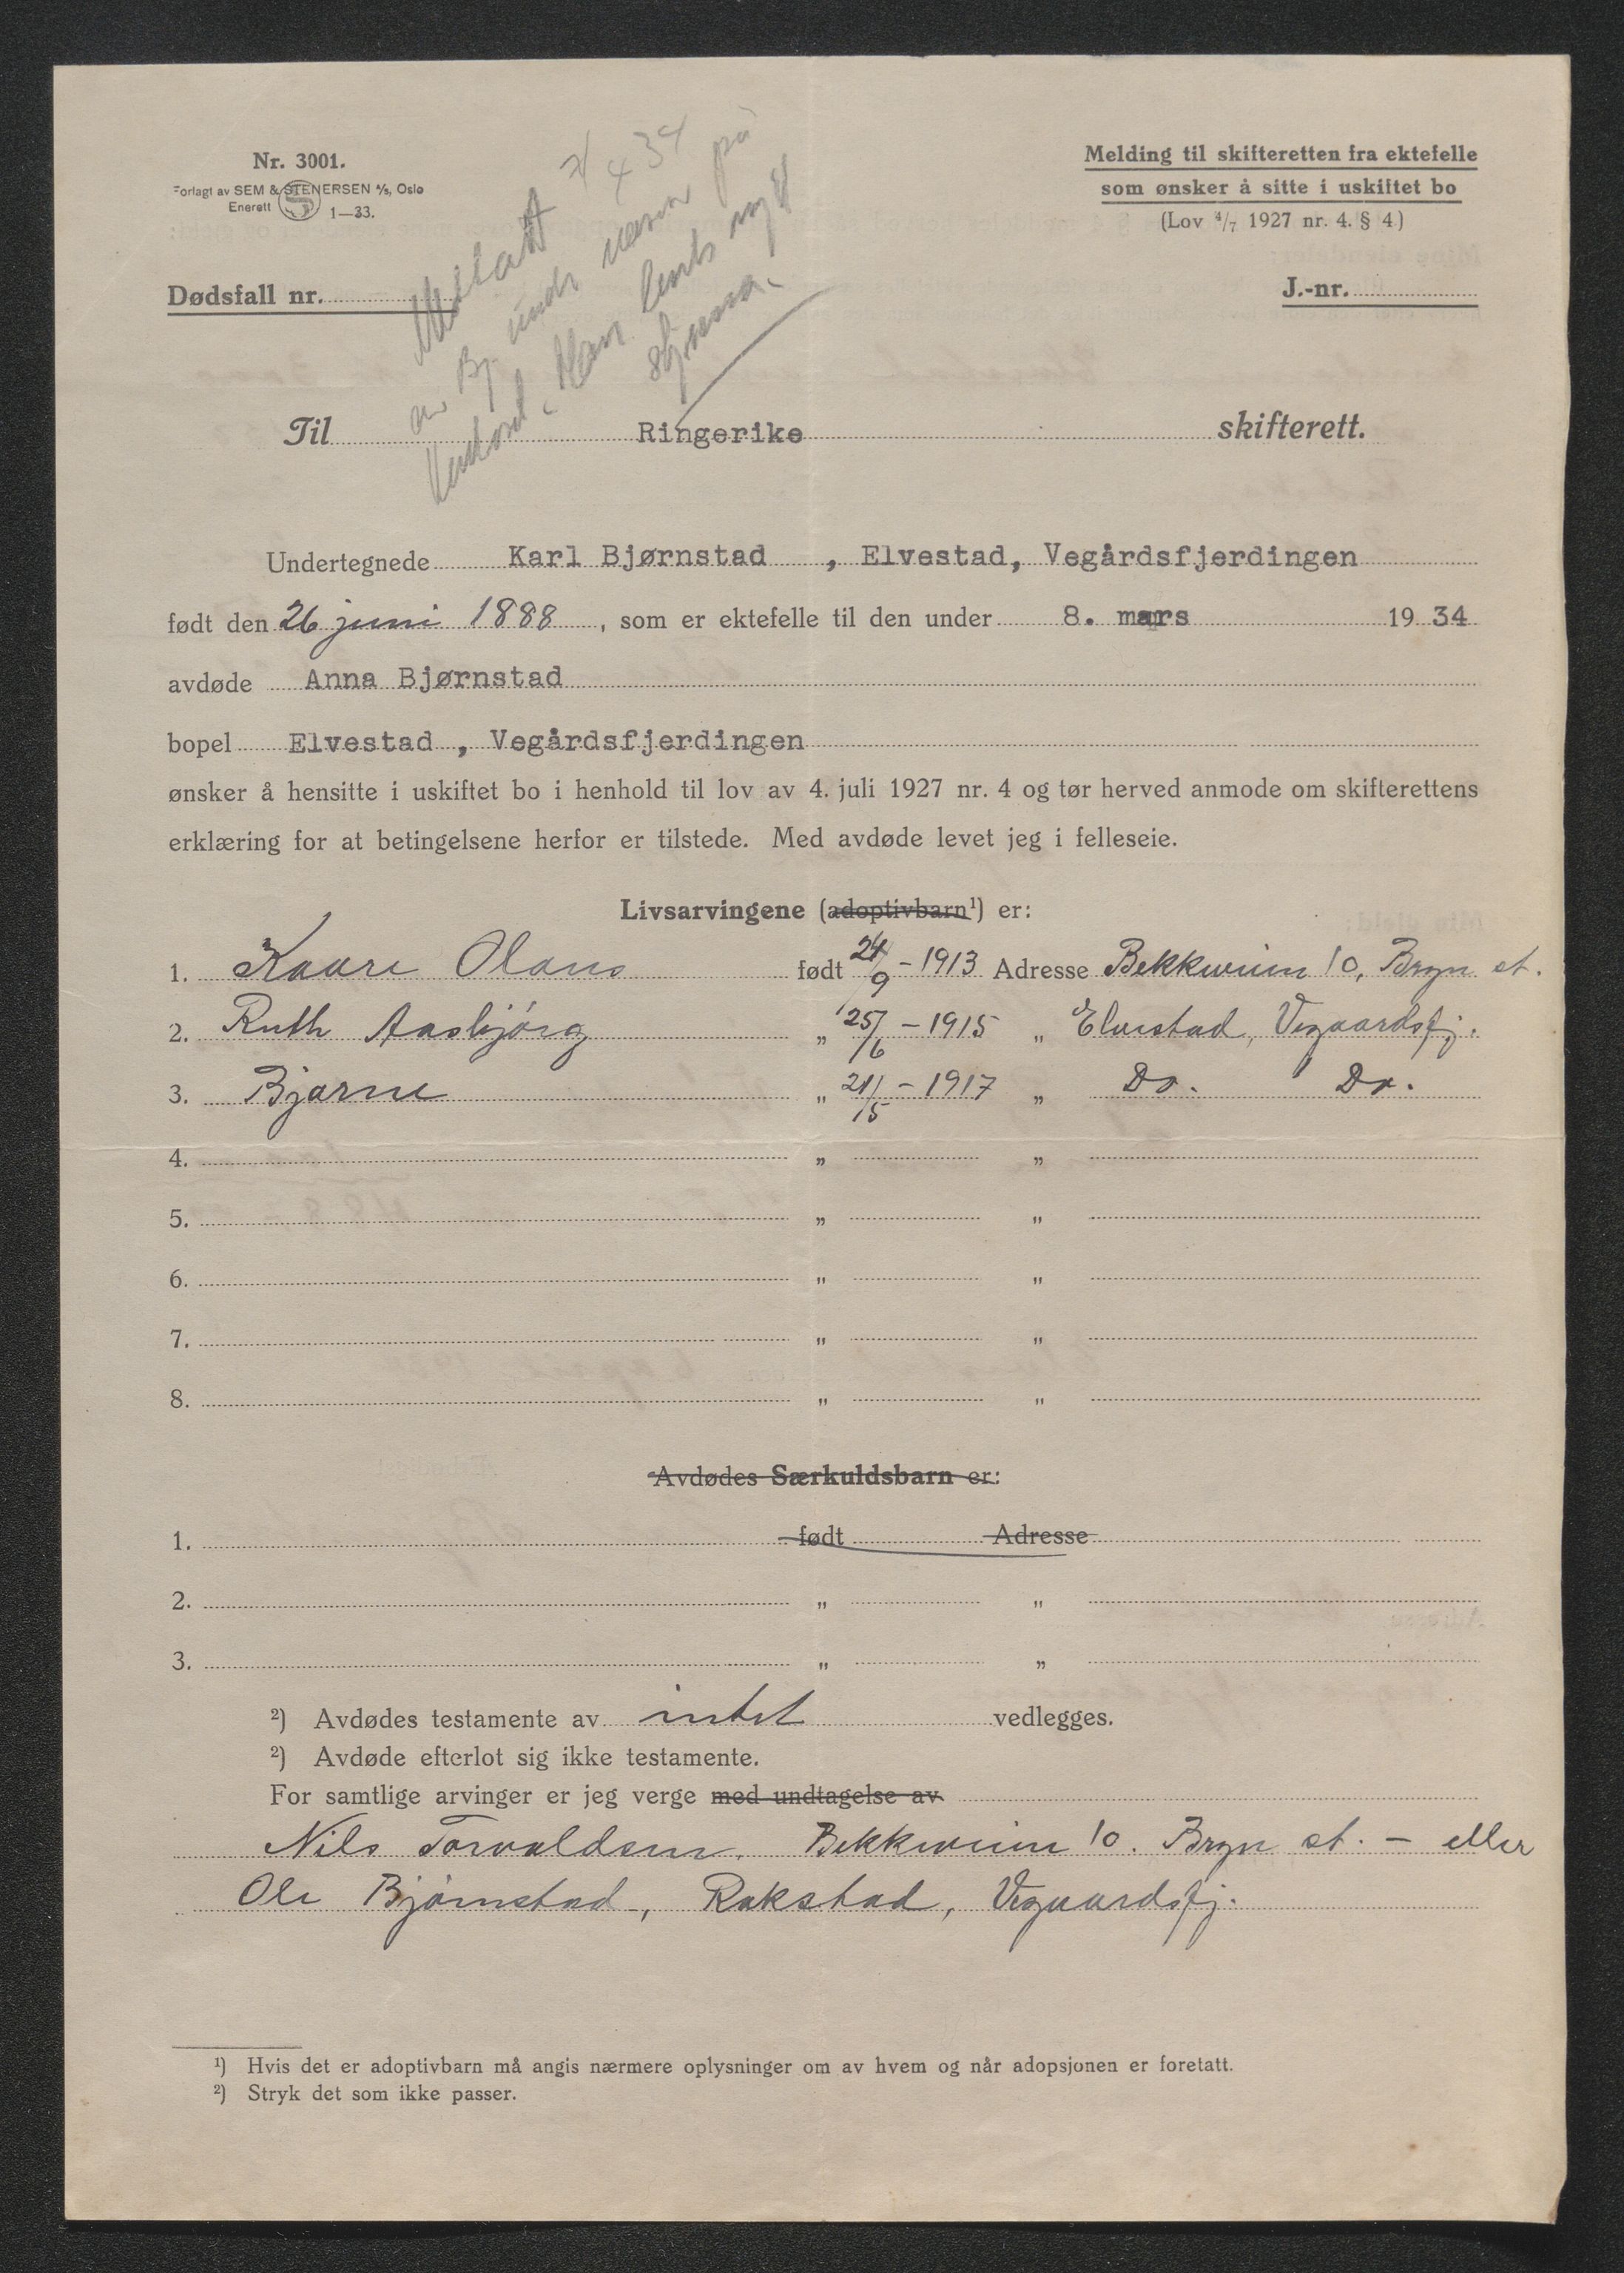 Nr. 3001.
Forlagt av SEM & STENERSEN A/S, Oslo
Enerett S 1—33.
Melding til skifteretten fra ektefelle
som ønsker å sitte i uskiftet bo
(Lov 4/7 1927 nr. 4. § 4)
Dødsfall nr.
J.-nr.
4 34
på
Til Ringerike skifterett.
Undertegnede Karl Bjørnstad , Elvestad, Vegårdsfjerdingen
født den 26 juni 1888 , som er ektefelle til den under 8. mars 19 34
avdøde Anna Bjørnstad
bopel Elvestad , Vegårdsfjerdingen
ønsker å hensitte i uskiftet bo i henhold til lov av 4. juli 1927 nr. 4 og tør herved anmode om skifterettens
erklæring for at betingelsene herfor er tilstede. Med avdøde levet jeg i felleseie.
Livsarvingene (adoptivbarn¹) er:
1. Kaare Olaus født 24/9 - 1913 Adresse 10, Bryn st.
2. Ruth Aasbjörg „ 25/6 - 1915 „ Elvestad, Vegaardsfj.
3. Bjarne „ 21/5 - 1917 „ Do. Do.
4. „ „
5. „ „
6. „ „
7. „ „
8. „ „
Avdødes Særkuldsbarn er:
1. født Adresse
2. „ „
3. „ „
²) Avdødes testamente av intet vedlegges.
²) Avdøde efterlot sig ikke testamente.
For samtlige arvinger er jeg verge med undtagelse av
Nils Torvaldsen. 10. Bryn st. — eller
Ole Bjørnstad, Rakstad, Vegaardsfj.
¹) Hvis det er adoptivbarn må angis nærmere oplysninger om av hvem og når adopsjonen er foretatt.
²) Stryk det som ikke passer.